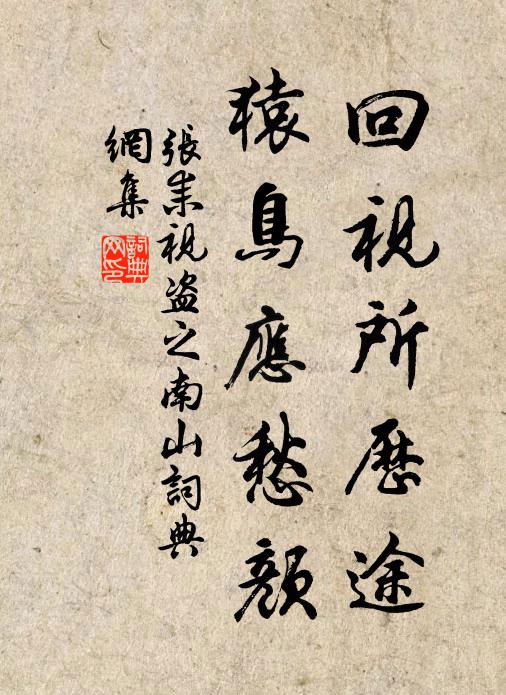 回視所歷途
猿鳥應愁顏
張耒視盗之南山詞典
網集
詞典
网印